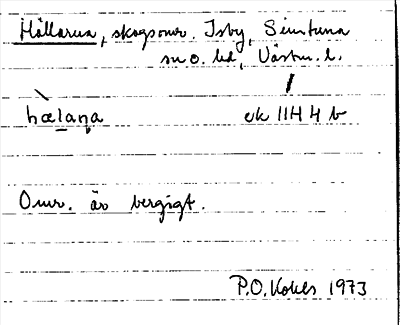 Hällarna, skogsomr. Isby, Simtuna
sn o. hd, Västm. l.
hælaṇa ek 11H 4 b
Omr. är bergigt.
P.O. 1973